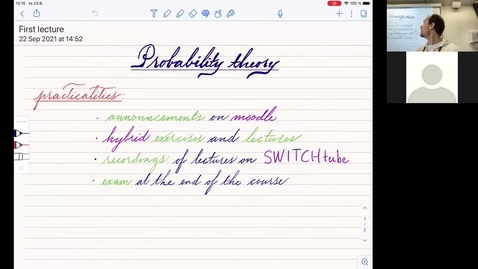 13.16 to 23.9.
100 %
First lecture
22 Sep 2021 at 14:52
Probability theory
practicalities:
· announcements on moodle
· hybrid exercises and lectures
· recordings of lectures on SWITCHtube
· exam at the end of the course